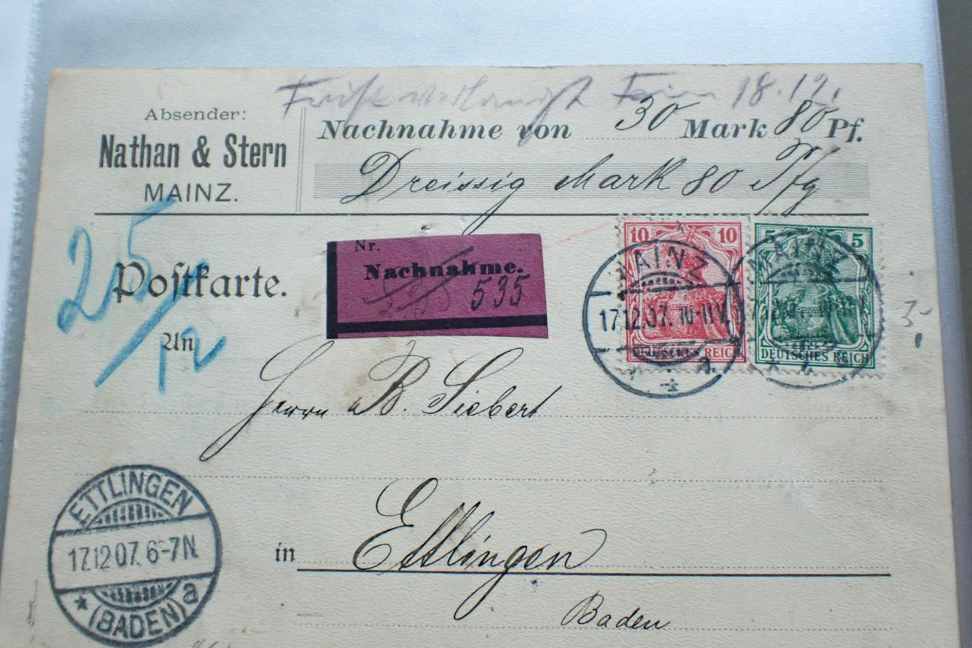 Frist verlangt 18.12.
Absender:
Nathan & Stern
MAINZ.
Nachnahme von 30 Mark 80 Pf.
Dreissig Mark 80 Pfg
25/12
Postkarte.
An
Nr.
Nachnahme.
535
10 10
DEUTSCHES REICH
5 5
DEUTSCHES REICH
MAINZ
17.12.07. 10-11V.
a
MAINZ
Herrn B. Siebert
ETTLINGEN
17.12.07. 6-7N.
(BADEN) a
in Ettlingen
Baden